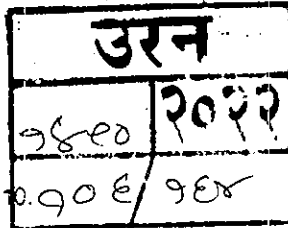 उरन
१४९० २०२२
१०६/१६४